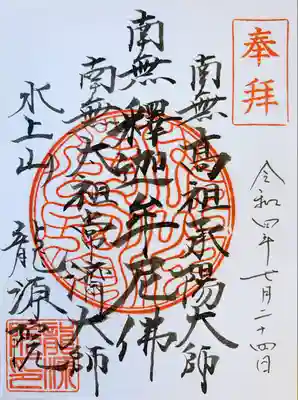 奉拝
令和四年七月二十四日
南無高祖承陽大師
南無釋迦牟尼佛
南無太祖常済大師
水上山 龍源院